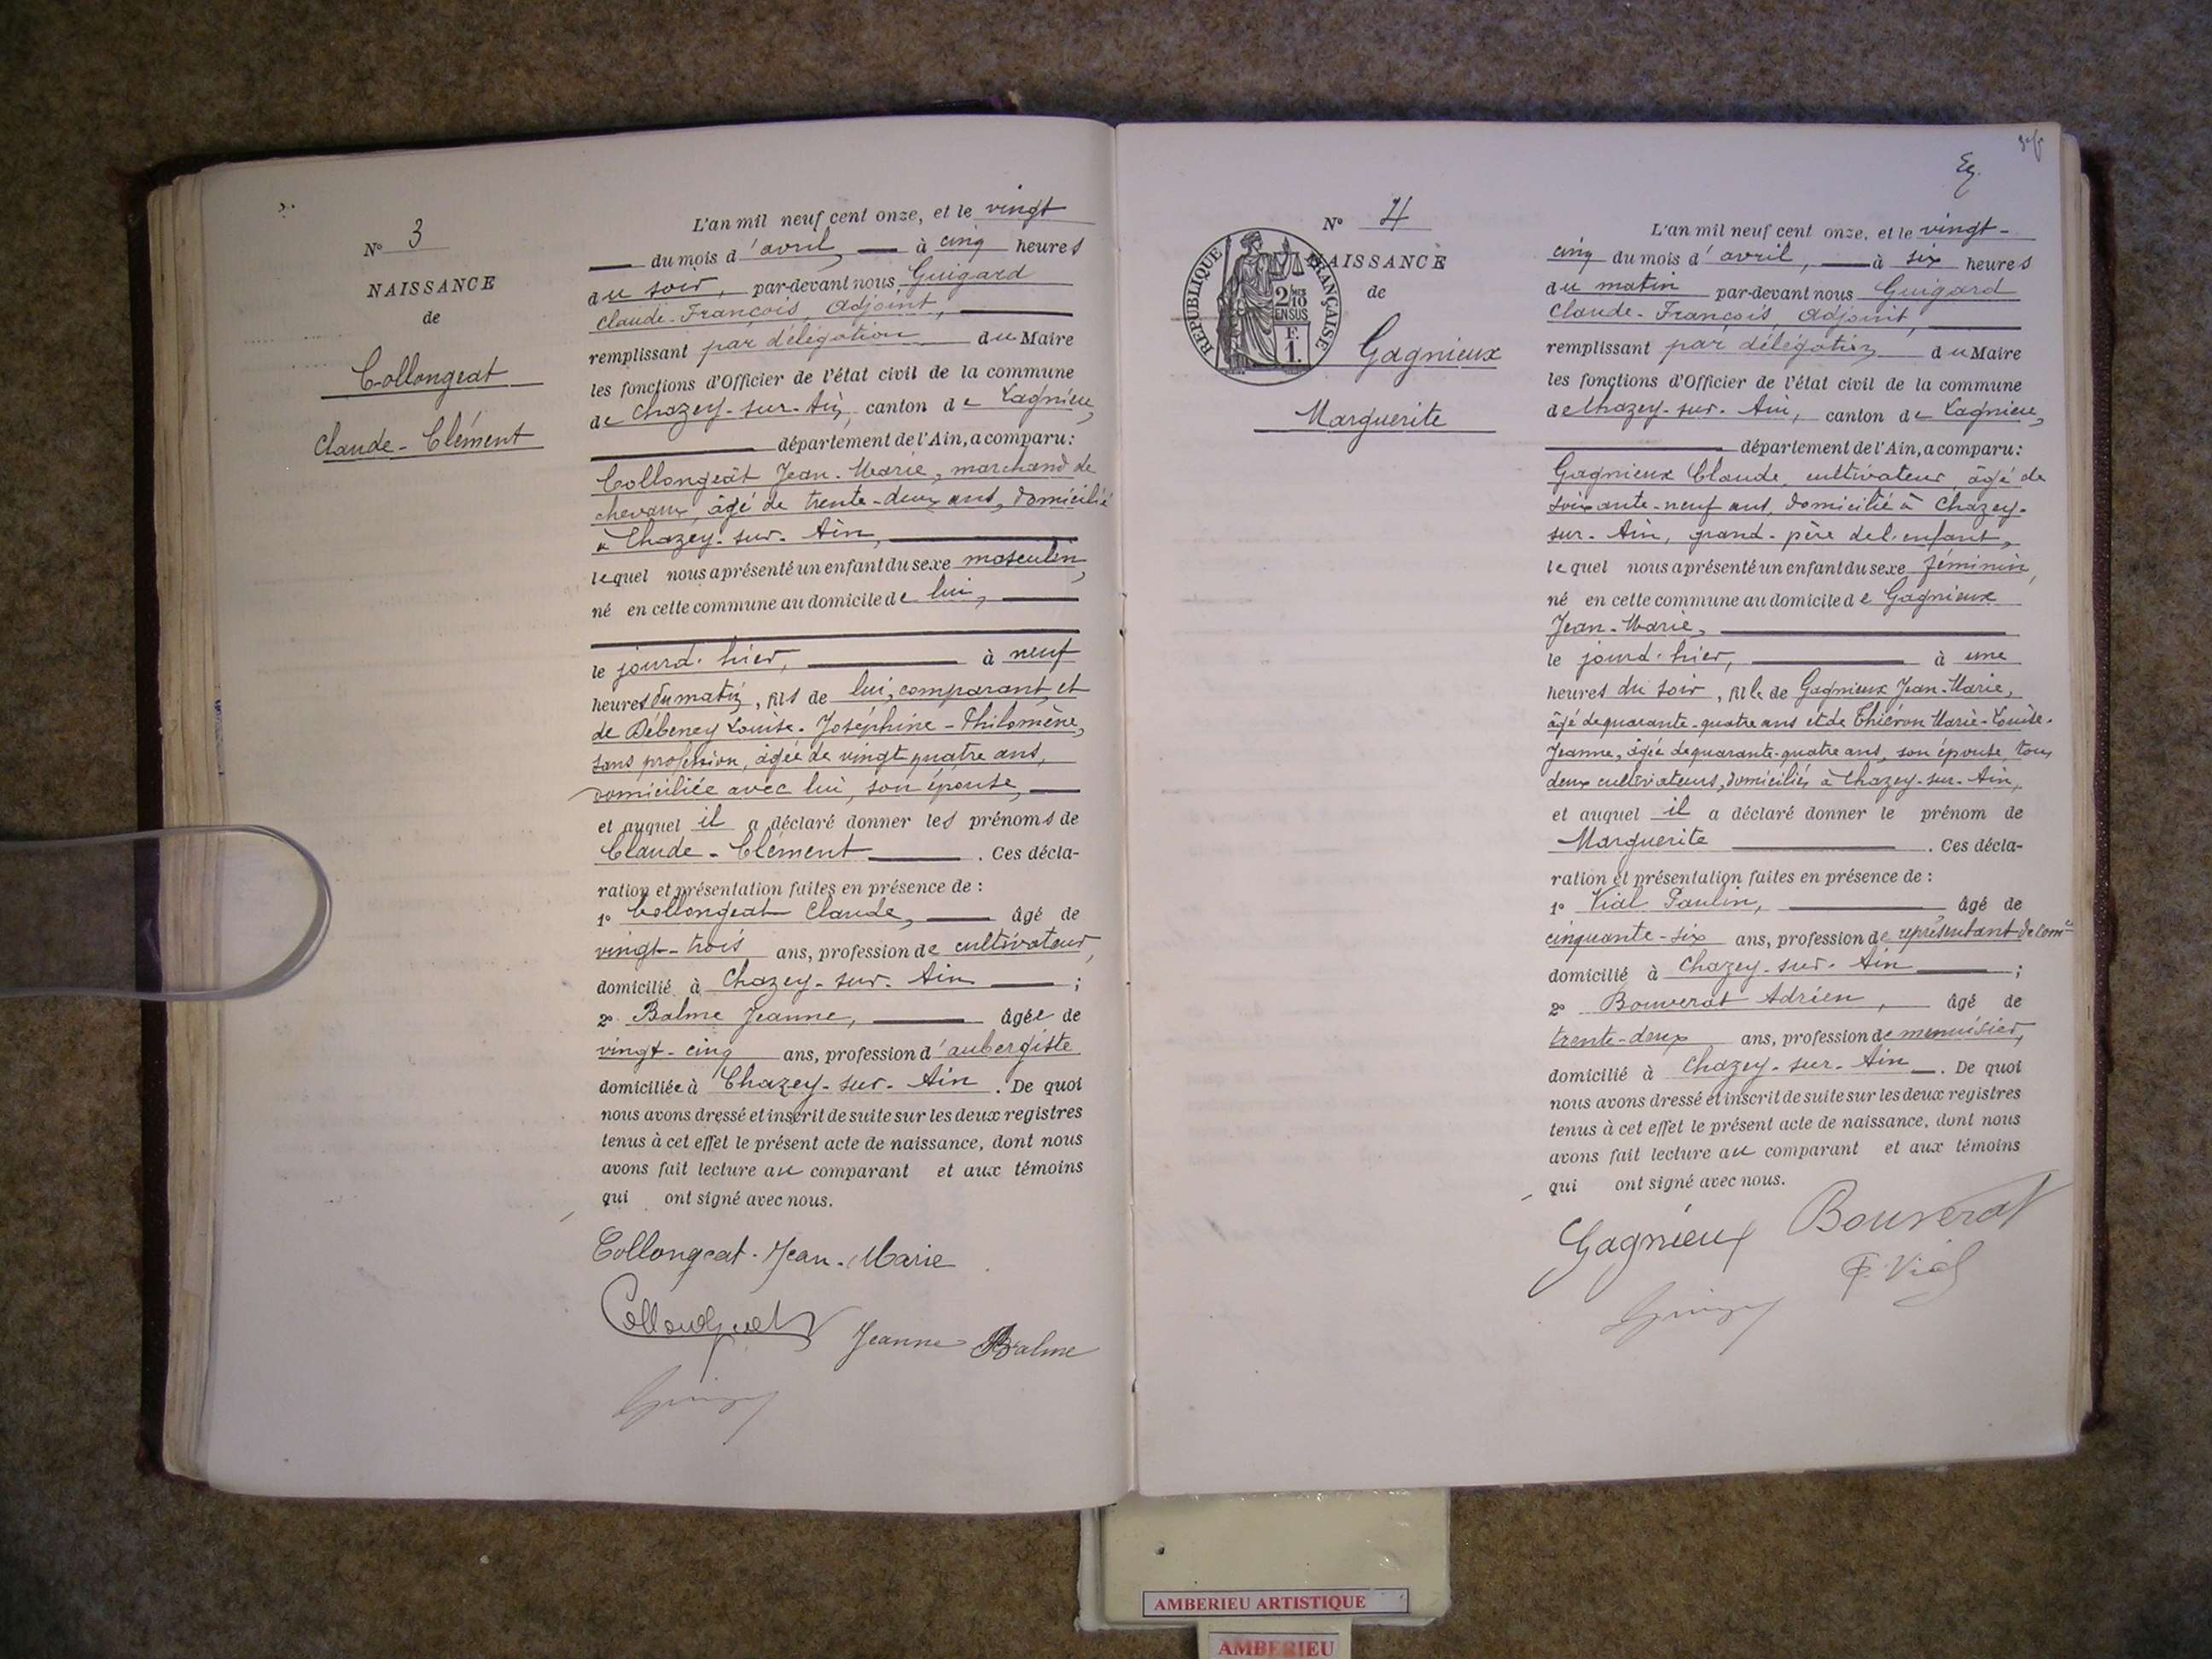 N° 3
NAISSANCE
de
Collongeat
Claude-Clément
L'an mil neuf cent onze, et le vingt
du mois d'avril, à cinq heures
du soir, par-devant nous Guigard
Claude-François, Adjoint,
remplissant par délégation du Maire
les fonctions d'Officier de l'état civil de la commune
de Chazey-sur-Ain, canton de Lagnieu,
département de l'Ain, a comparu:
Collongeat Jean-Marie, marchand de
chevaux, âgé de trente-deux ans, domicilié
à Chazey-sur-Ain,
lequel nous a présenté un enfant du sexe masculin,
né en cette commune au domicile de lui,
le jourd'hier, à neuf
heures du matin, fils de lui, comparant, et
de Débeney Louise-Joséphine-Philomène,
sans profession, âgée de vingt quatre ans,
domiciliée avec lui, son épouse,
et auquel il a déclaré donner les prénoms de
Claude-Clément. Ces décla-
ration et présentation faites en présence de :
1° Collongeat Claude, âgé de
vingt-trois ans, profession de cultivateur,
domicilié à Chazey-sur-Ain ;
2° Balme Jeanne, âgée de
vingt-cinq ans, profession d'aubergiste
domiciliée à Chazey-sur-Ain. De quoi
nous avons dressé et inscrit de suite sur les deux registres
tenus à cet effet le présent acte de naissance, dont nous
avons fait lecture au comparant et aux témoins
qui ont signé avec nous.
Collongeat Jean-Marie
Collongeat Jeanne Balme
N° 4
NAISSANCE
de
Gagnieux
Marguerite
RÉPUBLIQUE FRANÇAISE
2/10
EN SUS
F.
1.
L'an mil neuf cent onze, et le vingt-
cinq du mois d'avril, à six heures
du matin par-devant nous Guigard
Claude-François, Adjoint,
remplissant par délégation du Maire
les fonctions d'Officier de l'état civil de la commune
de Chazey-sur-Ain, canton de Lagnieu,
département de l'Ain, a comparu:
Gagnieux Claude, cultivateur, âgé de
soixante-neuf ans, domicilié à Chazey-
sur-Ain, grand-père de l'enfant,
lequel nous a présenté un enfant du sexe féminin,
né en cette commune au domicile de Gagnieux
Jean-Marie,
le jourd'hier, à une
heures du soir, fille de Gagnieux Jean-Marie,
âgé de quarante-quatre ans et de Thiéron Marie-Louise-
Jeanne, âgée de quarante-quatre ans, son épouse, tous
deux cultivateurs, domiciliés à Chazey-sur-Ain,
et auquel il a déclaré donner le prénom de
Marguerite. Ces décla-
ration et présentation faites en présence de :
1° Vial Paulin, âgé de
cinquante-six ans, profession de représentant de comce
domicilié à Chazey-sur-Ain ;
2° Bouverat Adrien, âgé de
trente-deux ans, profession de menuisier,
domicilié à Chazey-sur-Ain. De quoi
nous avons dressé et inscrit de suite sur les deux registres
tenus à cet effet le présent acte de naissance, dont nous
avons fait lecture au comparant et aux témoins
qui ont signé avec nous.
Gagnieux Bouverat
P. Vial
AMBERIEU ARTISTIQUE
AMBERIEU